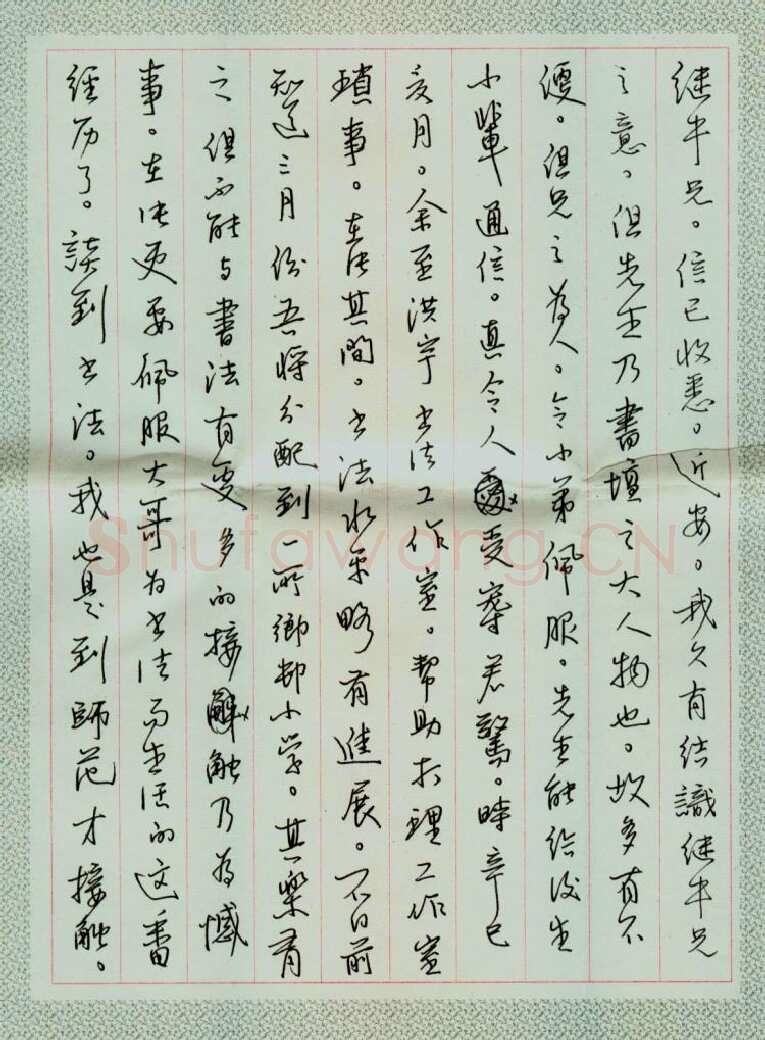 继牛兄。信已收悉。近安。我久有结識继牛兄
之意。但先生乃書壇之大人物也。故多有不
便。但兄之為人。令小弟佩服。先生能给後生
小輩通信。真令人受寵若驚。時辛巳
亥月。余至洪宇书法工作室。帮助打理工作室
瑣事。在此其間。书法水平略有進展。不日前
知道三月份吾將分配到一所鄉邨小学。其樂有
之 但不能与書法有更多的接觸乃為憾
事。在此更要佩服大哥为书法而生活的这番
经历了。談到书法。我也是到師范才接触。
Shufawang.CN